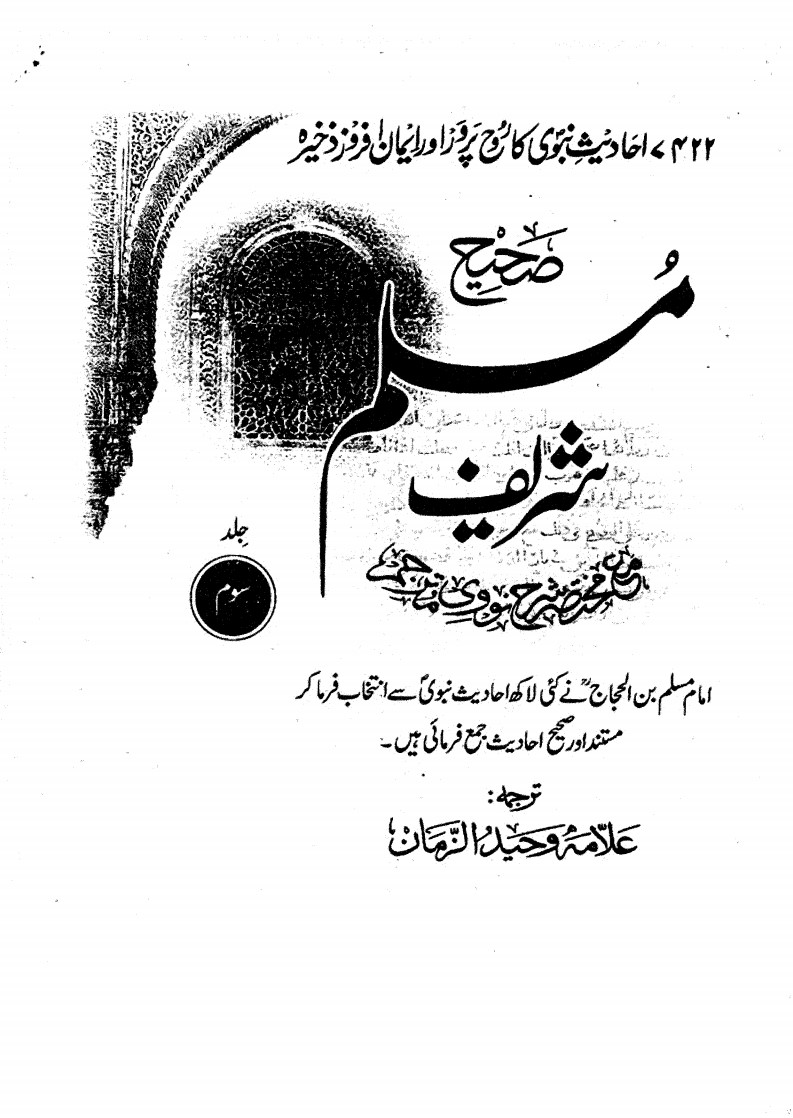 ۷۴۲۲ احادیثِ نبویؐ کا رُوح پَروَر اور ایمان افروز ذخیرہ
صَحِیح
مُسلم
شریف
جِلد
سوم
مع مختصر شرح نووی مترجم
امام مسلم بن الحجاجؒ نے کئی لاکھ احادیث نبویؐ سے انتخاب فرما کر
مستند اور صحیح احادیث جمع فرمائی ہیں۔
ترجمہ:
علّامہ وحیدُ الزّمان